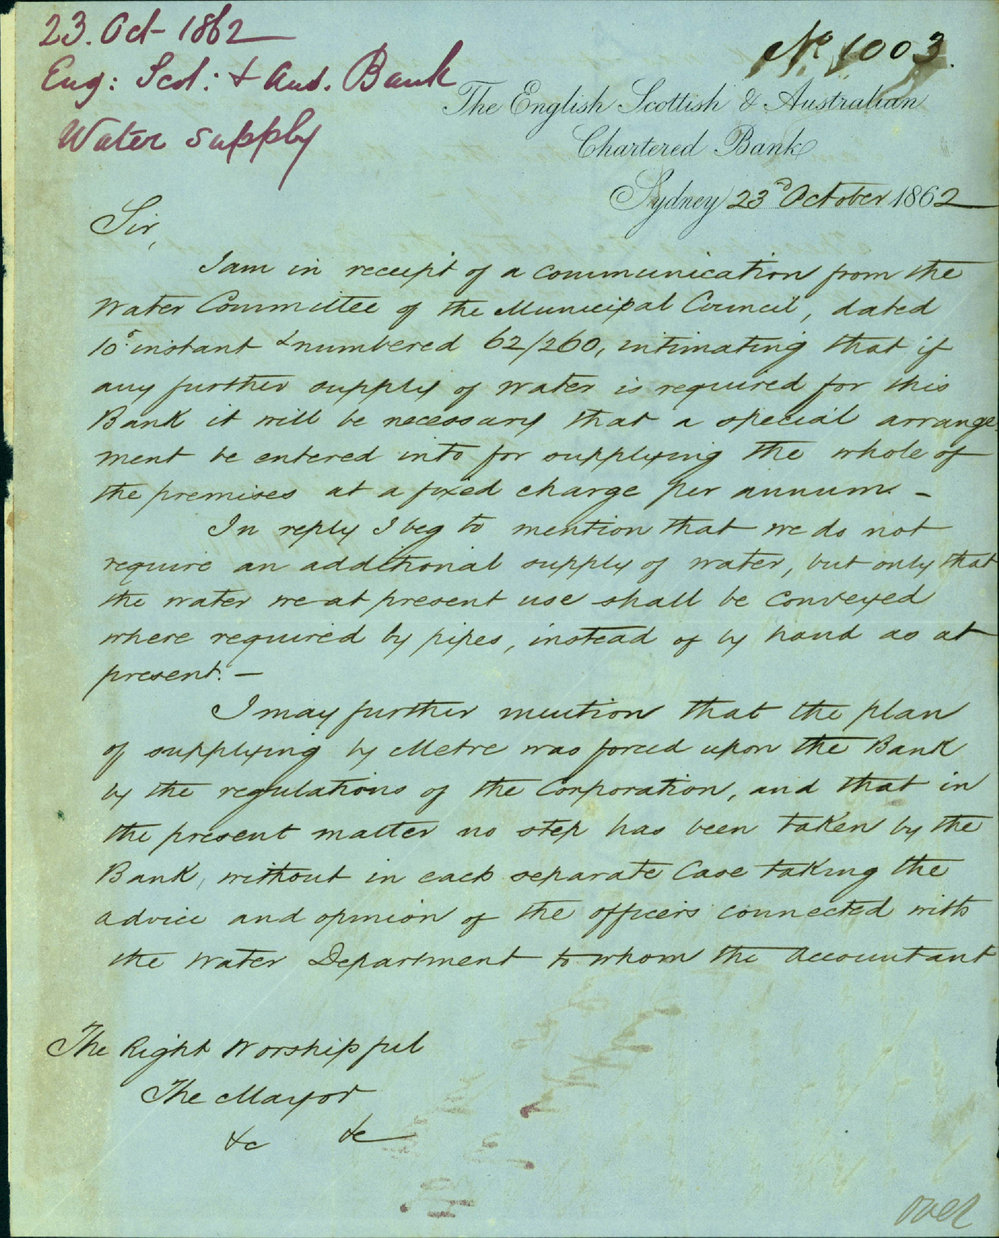 23. Oct - 1862
Eng: Scot: & Aus. Bank
Water supply
No 1003.
The English Scottish & Australian
Chartered Bank
Sydney 23d October 1862
Sir,
I am in receipt of a communication from the
Water Committee of the Municipal Council, dated
10th instant & numbered 62/260, intimating that if
any further supply of water is required for this
Bank it will be necessary that a special arrange
ment be entered into for supplying the whole of
the premises at a fixed charge per annum. -
In reply I beg to mention that we do not
require an additional supply of water, but only that
the water we at present use shall be conveyed
where required by pipes, instead of by hand as at
present. -
I may further mention that the plan
of supplying by Metre was forced upon the Bank
by the regulations of the Corporation, and that in
the present matter no step has been taken by the
Bank, without in each separate Case taking the
advice and opinion of the officers connected with
the Water Department to whom the Accountant
The Right Worshipful
The Mayor
&c &c
over